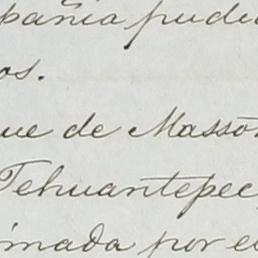 pañia pudi
os.
ue de Masson
Tehuantepec,
inada por el